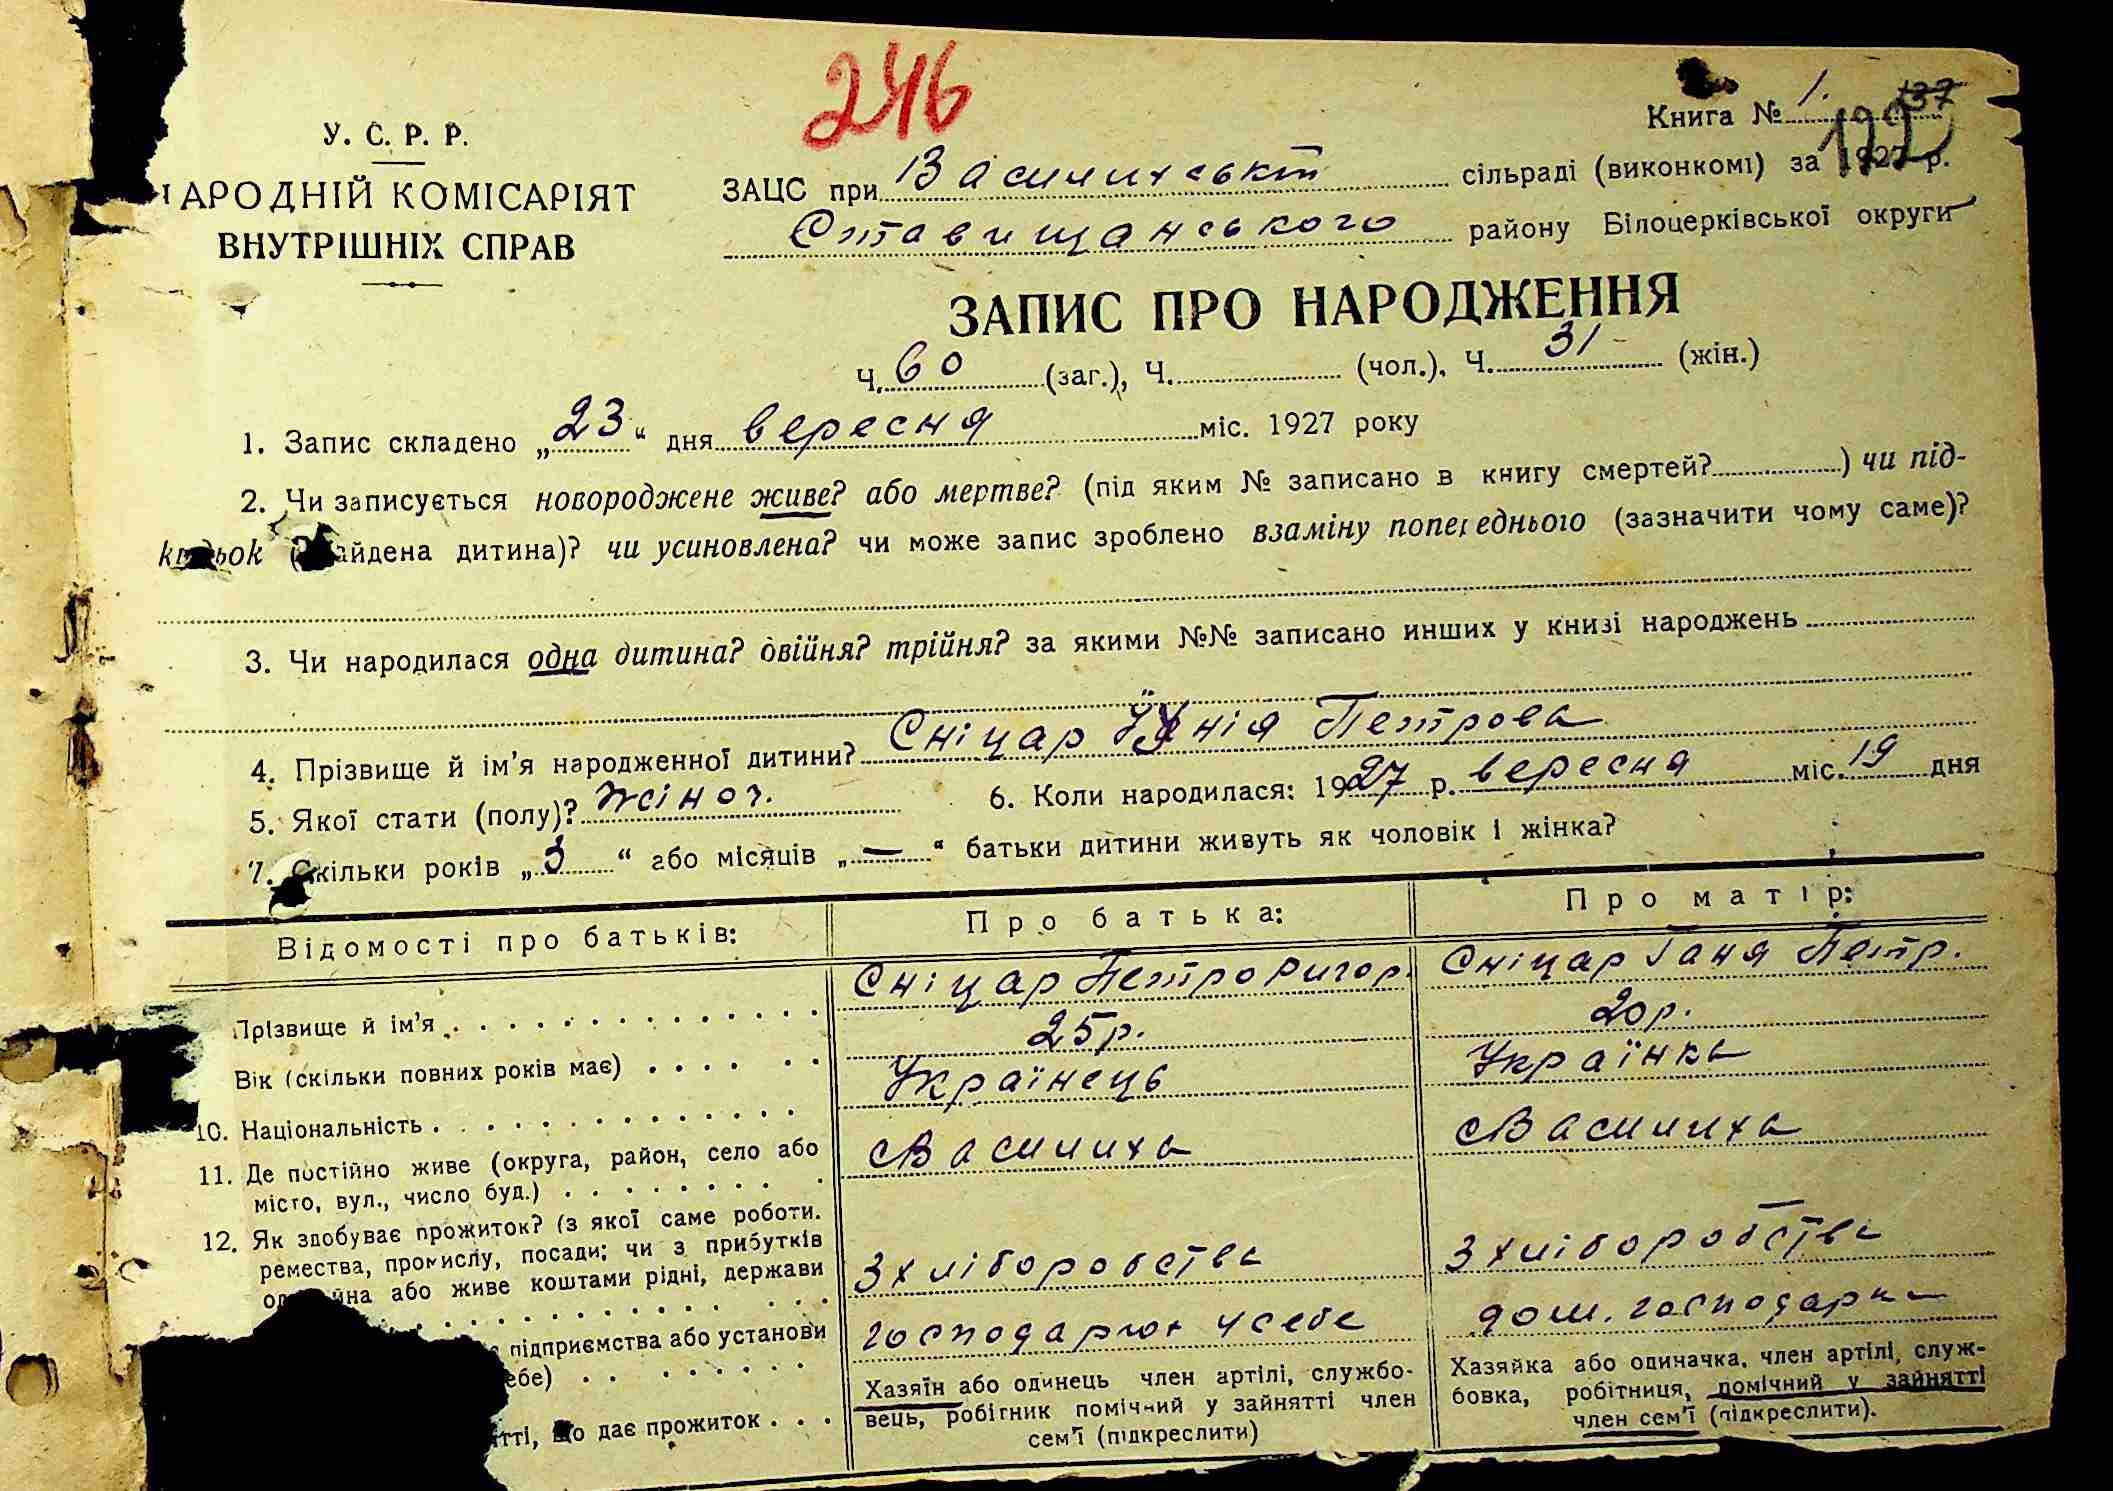 246
Книга № 1. 137
122
У. С. Р. Р.
НАРОДНІЙ КОМІСАРІЯТ
ВНУТРІШНІХ СПРАВ
ЗАЦС при Василиській сільраді (виконкомі) за 1927 р.
Ставищанського району Білоцерківської округи
ЗАПИС ПРО НАРОДЖЕННЯ
Ч. 60 (заг.), Ч. (чол.), Ч. 31 (жін.)
1. Запис складено „23“ дня вересня міс. 1927 року
2. Чи записується новороджене живе? або мертве? (під яким № записано в книгу смертей? ) чи під-
кидьок (знайдена дитина)? чи усиновлена? чи може запис зроблено взаміну попереднього (зазначити чому саме)?
3. Чи народилася одна дитина? двійня? трійня? за якими №№ записано инших у книзі народжень
4. Прізвище й ім’я народженної дитини? Сніцар Петрова
5. Якої стати (полу)? жіноч. 6. Коли народилася: 1927 р. вересня міс. 19 дня
7. Скільки років „3“ або місяців „—“ батьки дитини живуть як чоловік і жінка?
Відомості про батьків: Про батька: Про матір:
Прізвище й ім’я Сніцар Петро Ригор. Сніцар Ганя Петр.
Вік (скільки повних років має) 25р. 20р.
10. Національність Українець Українка
11. Де постійно живе (округа, район, село або
місто, вул., число буд.) с Василиха с Василиха
12. Як здобуває прожиток? (з якої саме роботи.
ремества, промислу, посади; чи з прибутків
або живе коштами рідні, держави
З хліборобства З хліборобства
підприємства або установи
ебе) господарюк у себе дом. господарка
тті, що дає прожиток
Хазяїн або одинець член артілі, службо-
вець, робітник помічний у зайнятті член
сем’ї (підкреслити)
Хазяйка або одиначка, член артілі, служ-
бовка, робітниця, помічний у зайнятті
член сем’ї (підкреслити).